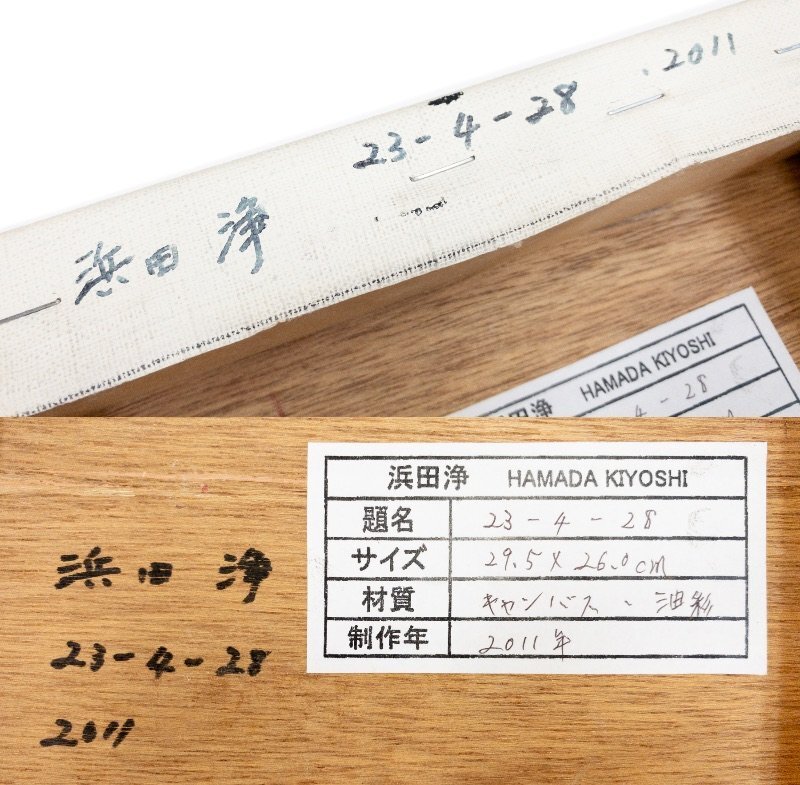 浜田 浄 23-4-28 .2011
浜田浄 HAMADA KIYOSHI
4-28
浜田浄 HAMADA KIYOSHI
題名 23-4-28
サイズ 29.5×26.0cm
材質 キャンバス、油彩
制作年 2011年
浜田 浄
23-4-28
2011